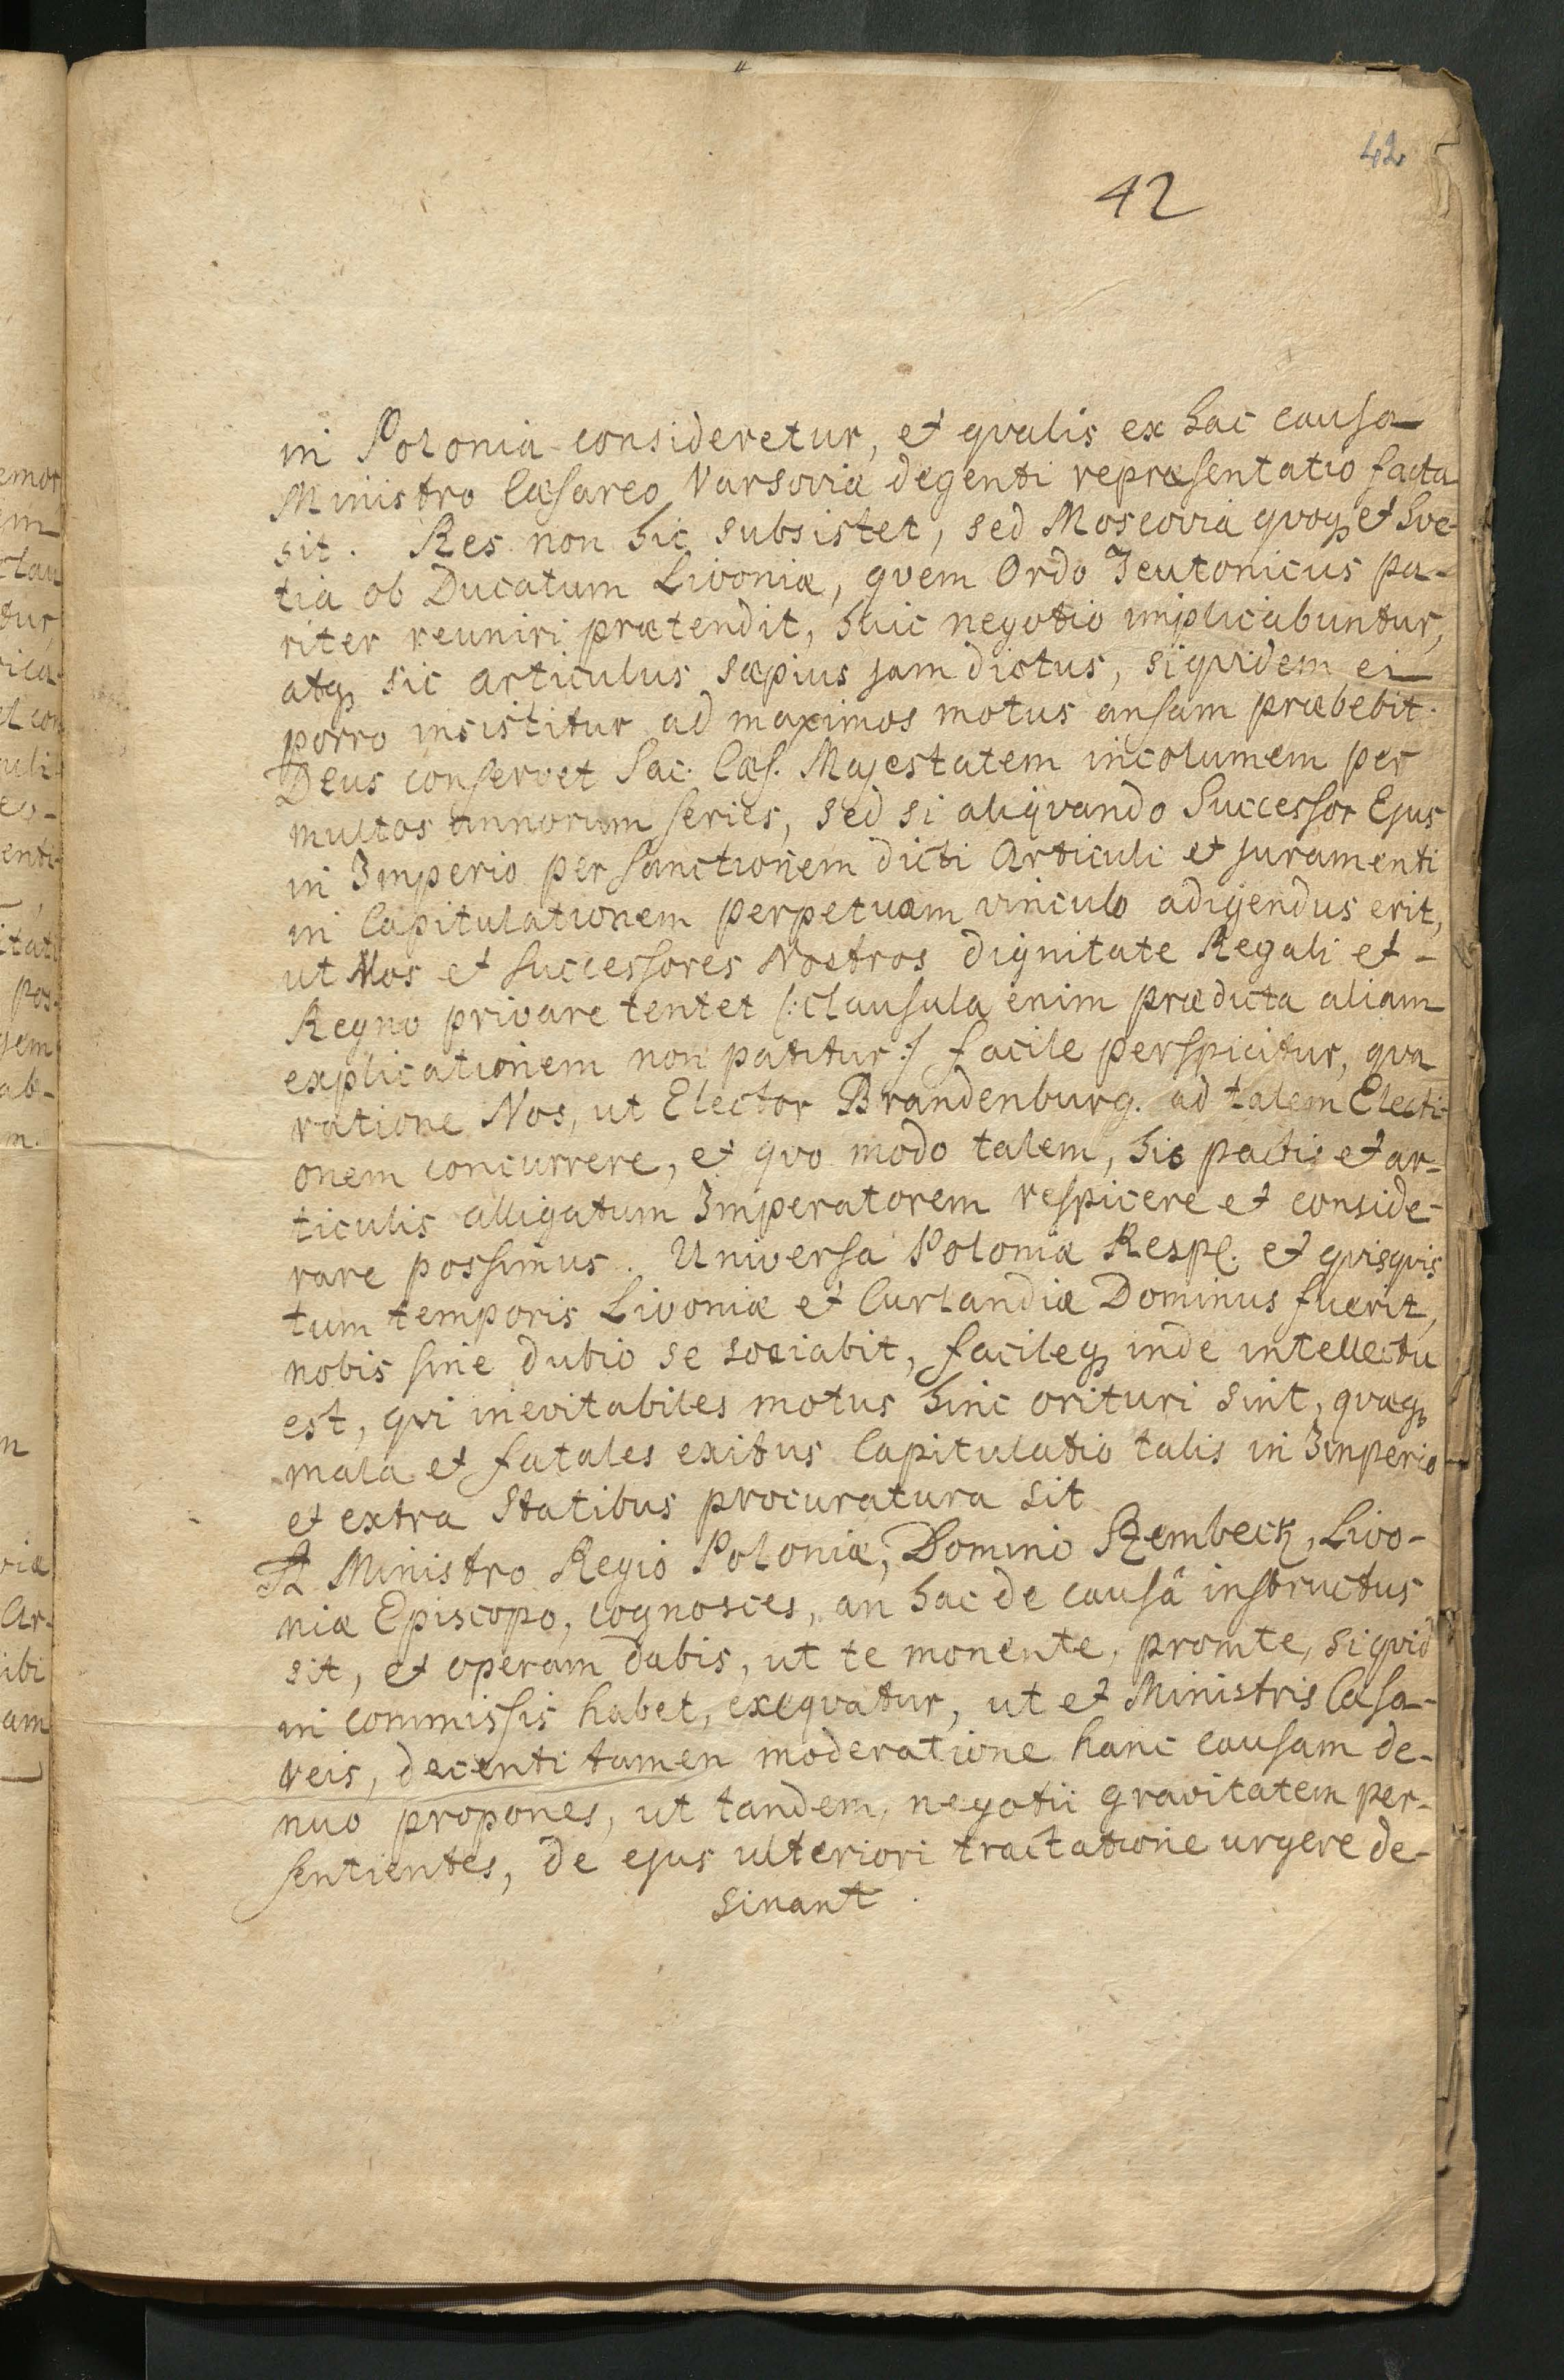 42
42
in Polonia consideretur, et qvalis ex hac causa
Ministro Cæsareo Varsoviæ degenti repræsentatio facta
sit. Res non hic subsistet, sed Moscovia qvoqꝫ et Sve-
tia ob Ducatum Livoniæ, qvem Ordo Teutonicus pa-
riter reuniri prætendit, huic negotio implicabuntur,
atqꝫ sic articulus sæpius jam dictus, siqvidem ei
porro insistitur ad maximos motus ansam præbebit.
Deus conservet Sac. Cæs. Majestatem incolumem per
multas annorum series, sed si aliqvando Successor Ejus
in Imperio per sanctionem dicti Articuli et juramenti
in Capitulationem perpetuam vinculo adigendus erit,
ut Nos et Successores Nostros dignitate Regali et -
Regno privare tentet /:clausula enim prædicta aliam
explicationem non patitur:/ facile perspicitur, qva
ratione Nos, ut Elector Brandenburg. ad talem Electi-
onem concurrere, et qvo modo talem, his pactis et ar-
ticulis alligatum Imperatorem respicere et conside-
rare possimus. Universa Poloniæ Resp. et qvisqvis
tum temporis Livoniæ et Curlandiæ Dominus fuerit,
nobis sine dubio se sociabit, facileqꝫ inde intellectu
est, qvi inevitabiles motus hinc orituri sint, qvæqꝫ
mala et fatales exitus Capitulatio talis in Imperio
et extra Statibus procuratura sit
A Ministro Regio Poloniæ, Domino Szembeck, Livo-
niæ Episcopo, cognosces, an hac de causâ instructus
sit, et operam dabis, ut te monente, promte, siqvid
in commissis habet, exeqvatur, ut et Ministris Cæsa-
reis, decenti tamen moderatione hanc causam de-
nuo propones, ut tandem, negotii gravitatem per-
sentientes, de ejus ulteriori tractatione urgere de-
sinant.